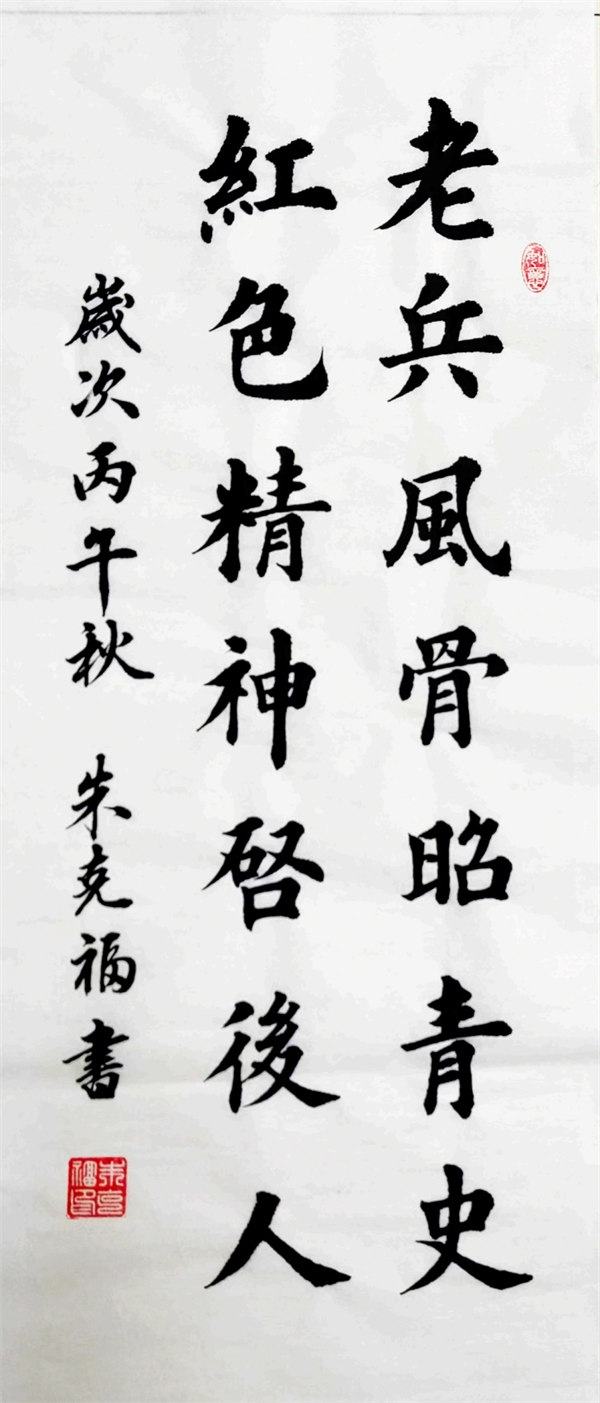 老兵風骨昭青史
紅色精神啓後人
歲次丙午秋 朱克福書
朱克福印